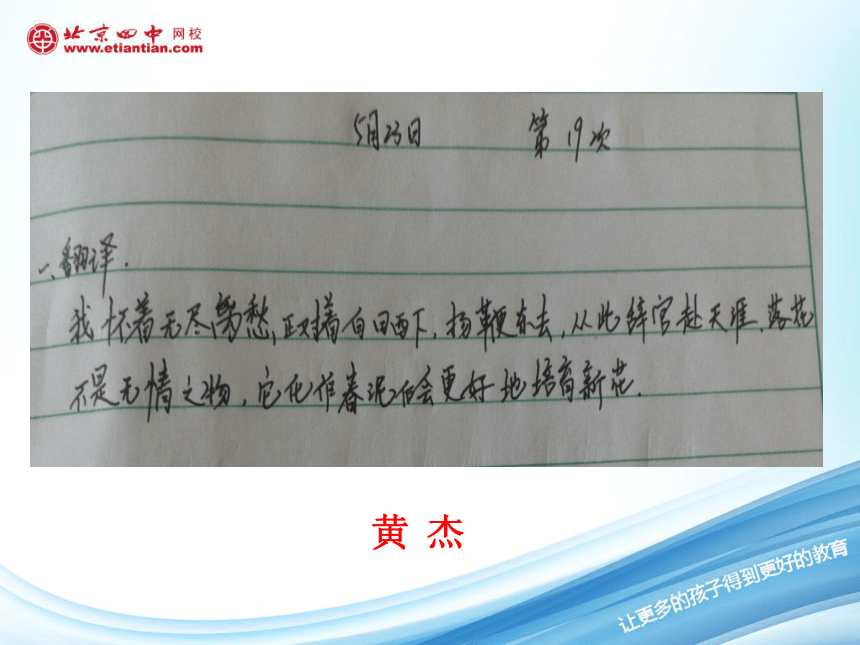 北京四中 网校
www.etiantian.com
5月23日 第19次
一、翻译.
我怀着无尽离愁,正对着白日西下,扬鞭东去,从此辞官赴天涯.落花
不是无情之物,它化作春泥后会更好地培育新花.
黄 杰
让更多的孩子得到更好的教育